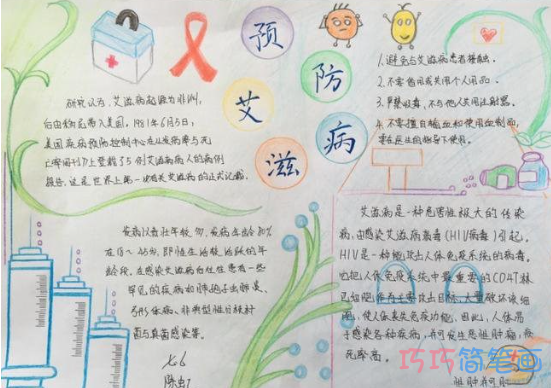 预防艾滋病
研究认为,艾滋病起源于非洲,
后由移民带入美国,1981年6月5日,
美国疾病预防控制中心在从发病率与死
亡率周刊上登载了5例艾滋病病人的病例
报告,这是世界上第一次有关艾滋病的正式记载.
1.避免与艾滋病患者接触.
2.不要借用或共用个人用品.
3.严禁吸毒,不与他人共用注射器.
4.不要擅自输血和使用血制品,
要在医生的指导下使用.
发病以青壮年较 发病年龄80%
在18~45岁,即性生活较活跃的年
龄段,在感染艾滋病后往往患有一些
罕见的疾病如肺孢子虫肺炎、
弓形体病、非典型性分枝杆
菌与真菌感染等.
艾滋病是一种危害性极大的传染
病,由感染艾滋病病毒(HIV病毒)引起,
HIV是一种能攻击人体免疫系统的病毒,
它把人体免疫系统中最重要的CD4T淋
巴细胞作为主要攻击目标,大量破坏该细
胞,使人体丧失免疫功能,因此,人体易
于感染各种疾病,并可发生恶性肿瘤,病
死率高.
巧巧简笔画